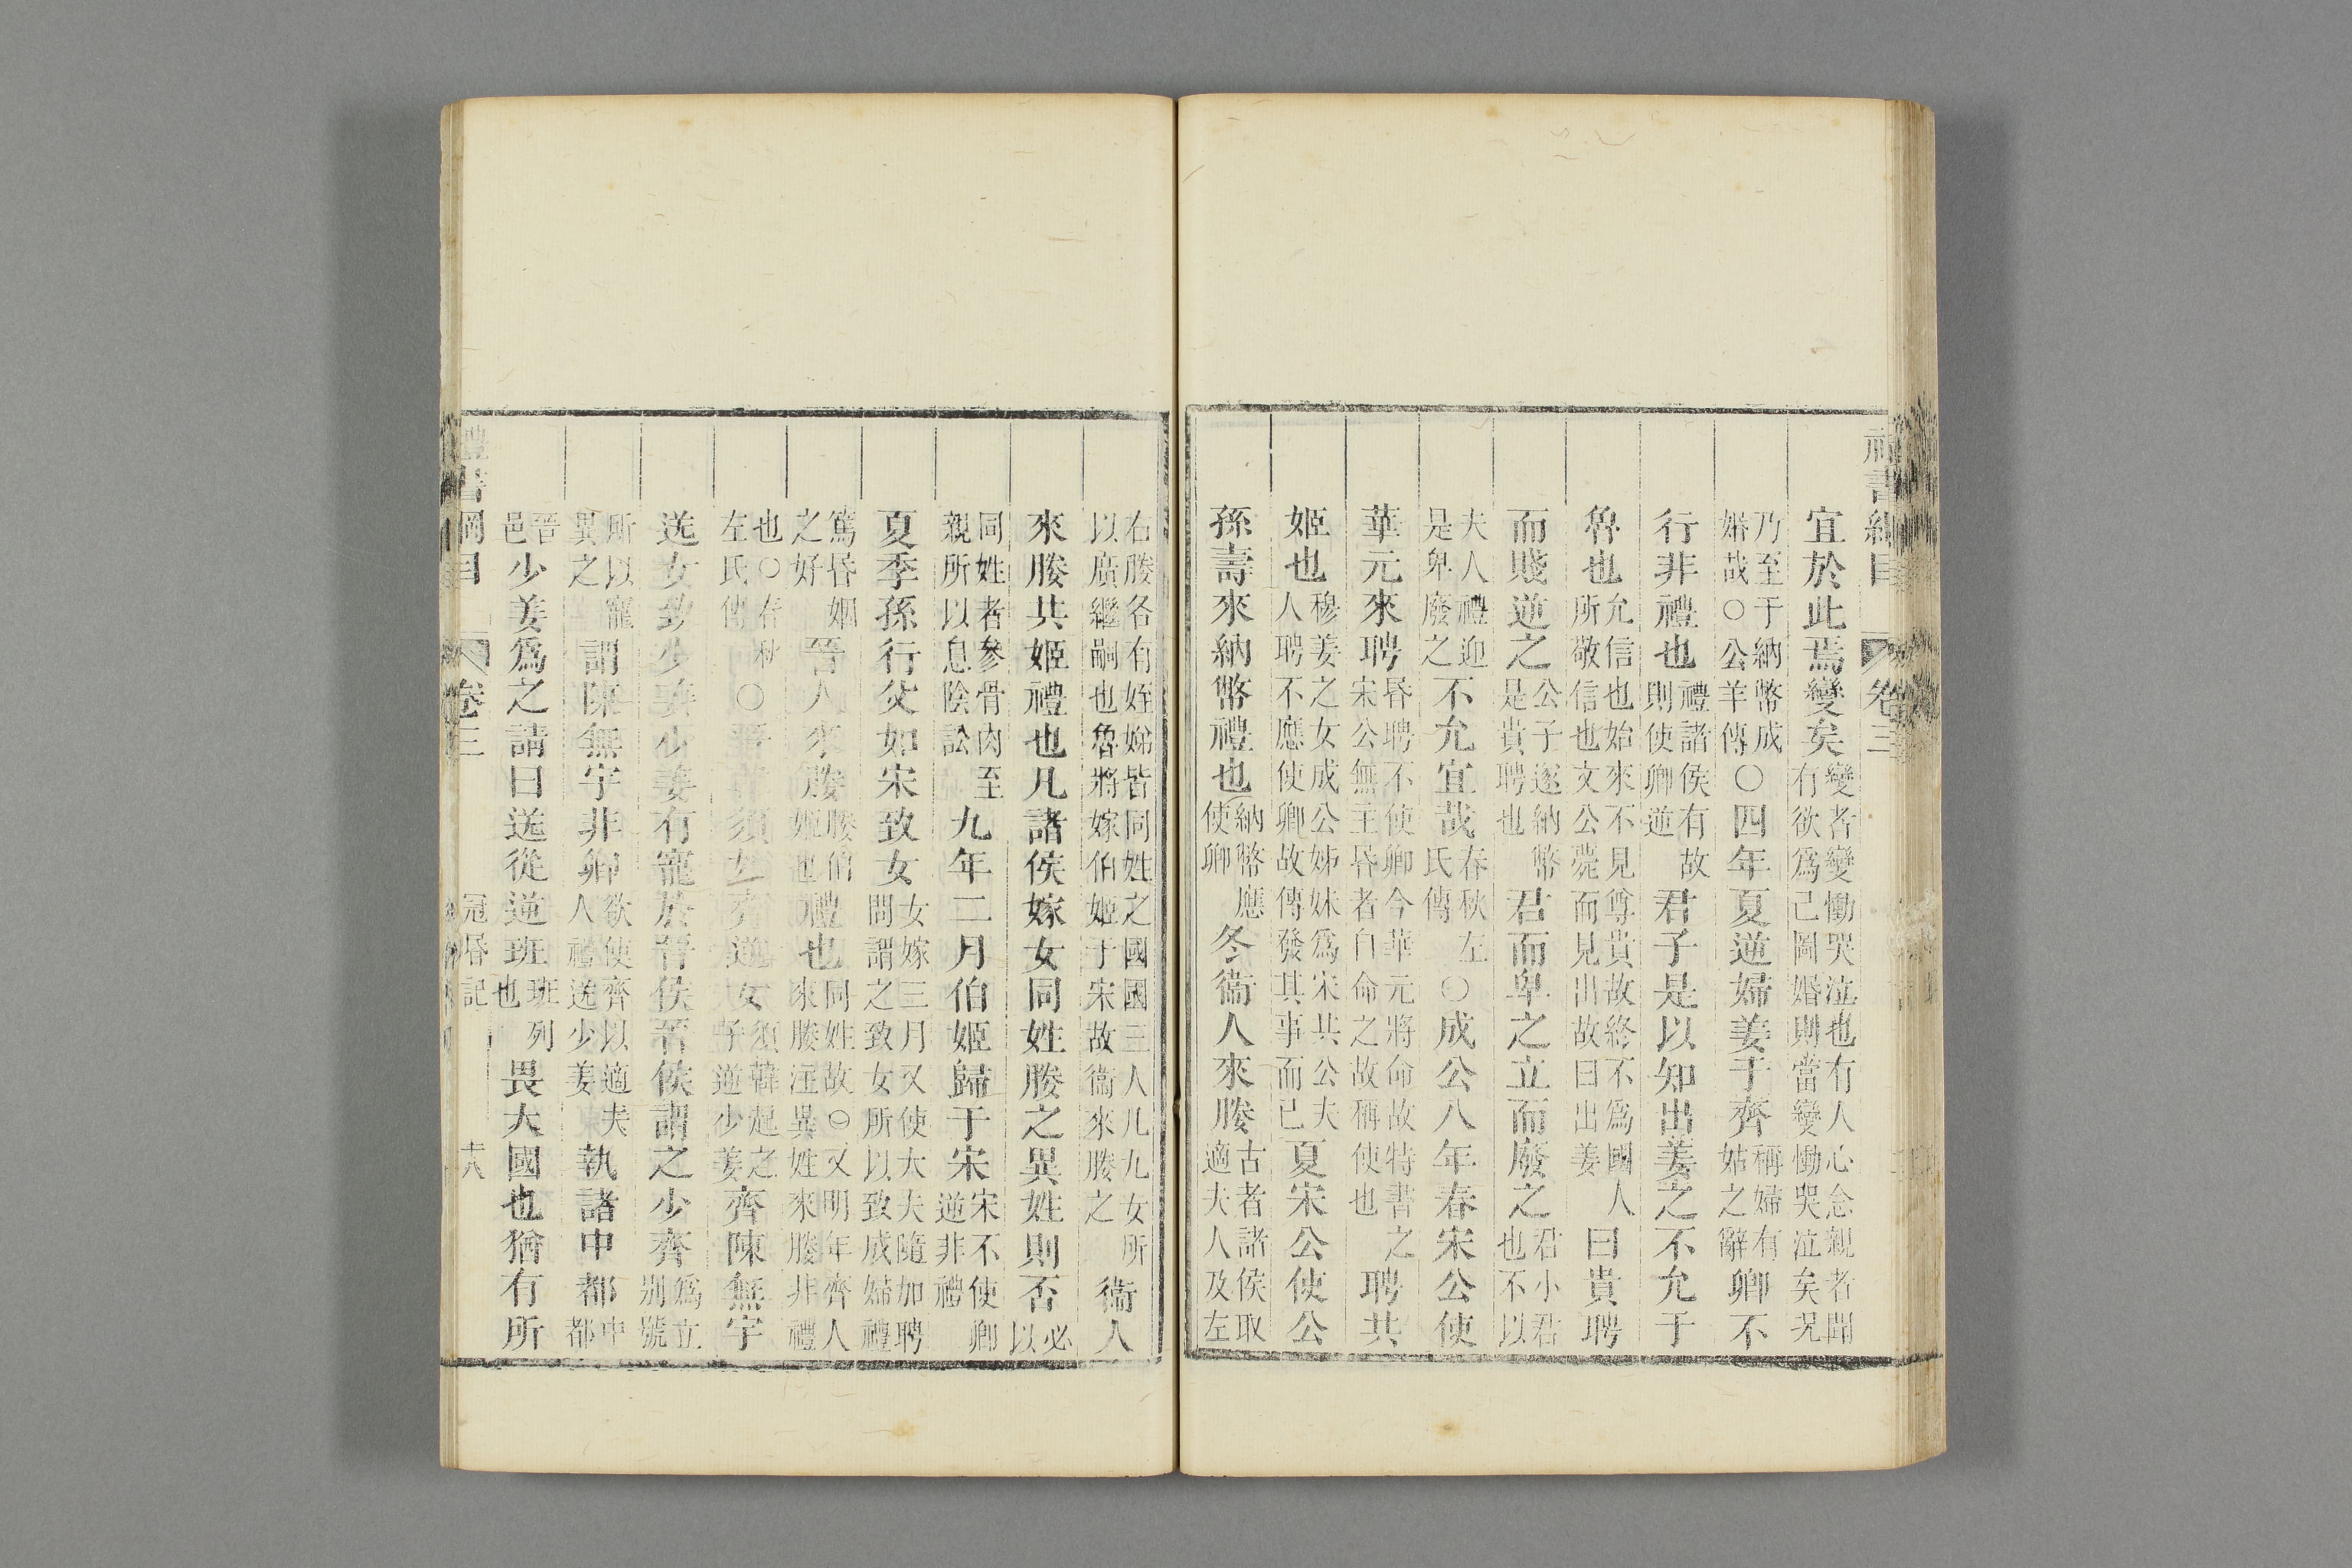 禮書綱目 卷三
宜於此焉變矣變者變慟哭泣也有人心念親者聞有欲爲己圖婚則當變慟哭泣矣況
乃至于納幣成婚哉○公羊傳○四年夏逆婦姜于齊稱婦有姑之辭卿不
行非禮也禮諸侯有故則使卿逆君子是以知出姜之不允于
魯也允信也始來不見尊貴故終不爲國人所敬信也文公薨而見出故曰出姜曰貴聘
而賤逆之公子遂納幣是貴聘也君而卑之立而廢之君小君也不以
夫人禮迎是卑廢之不允宜哉春秋左氏傳○成公八年春宋公使
華元來聘昏聘不使卿今華元將命故特書之宋公無主昏者自命之故稱使也聘共
姬也穆姜之女成公姊妹爲宋共公夫人聘不應使卿故傳發其事而已夏宋公使公
孫壽來納幣禮也納幣應使卿冬衞人來媵古者諸侯取適夫人及左
右媵各有姪娣皆同姓之國國三人凡九女所以廣繼嗣也魯將嫁伯姬于宋故衞來媵之衞人
來媵共姬禮也凡諸侯嫁女同姓媵之異姓則否必以
同姓者參骨肉至親所以息陰訟九年二月伯姬歸于宋宋不使卿逆非禮
夏季孫行父如宋致女女嫁三月又使大夫隨加聘問謂之致女所以致成婦禮
篤昏姻之好晉人來媵媵伯姬也禮也同姓故○又明年齊人來媵注異姓來媵非禮
也○春秋左氏傳○晉韓須如齊逆女須韓起之子逆少姜齊陳無宇
送女致少姜少姜有寵於晉侯晉侯謂之少齊爲立别號
所以寵異之謂陳無宇非卿欲使齊以適夫人禮送少姜執諸中都中都
晉邑少姜爲之請曰送從逆班班列也畏大國也猶有所
禮書綱目 卷三 冠昏記 十六